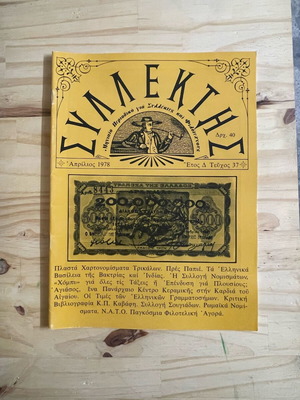 ΣΥΛΛΕΚΤΗΣ
Μηνιαίο Περιοδικό για Συλλέκτες και Φιλότεχνους
Δρχ. 40
Ἀπρίλιος 1978
Ἔτος Δ Τεῦχος 37
ΤΡΑΠΕΖΑ ΤΗΣ ΕΛΛΑΔΟΣ
200.000.000
Πλαστά Χαρτονομίσματα Τρικάλων. Πρές Παπιέ. Τά Ἑλληνικά
Βασίλεια τῆς Βακτρίας καί Ἰνδίας. Ἡ Συλλογή Νομισμάτων,
«Χόμπι» γιά ὅλες τίς Τάξεις ἤ Ἐπένδυση γιά Πλουσίους;
Ἁγιάσος, ἕνα Πανάρχαιο Κέντρο Κεραμικῆς στήν Καρδιά τοῦ
Αἰγαίου. Οἱ Τιμές τῶν Ἑλληνικῶν Γραμματοσήμων. Κριτική
Βιβλιογραφία Κ.Π. Καβάφη. Συλλογή Σουγιάδων. Ρωμαϊκά Νομί-
σματα. Ν.Α.Τ.Ο. Παγκόσμια Φιλοτελική Ἀγορά.